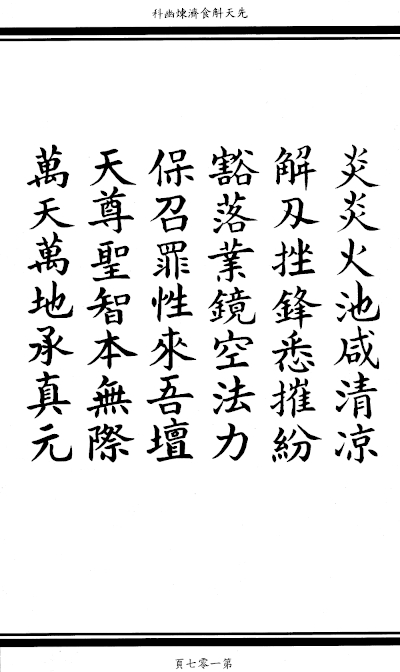 先天斛食濟煉幽科
炎炎火池咸清凉
解刄挫鋒悉摧紛
豁落業鏡空法力
保召罪性來吾壇
天尊聖智本無際
萬天萬地承真元
第一零七頁